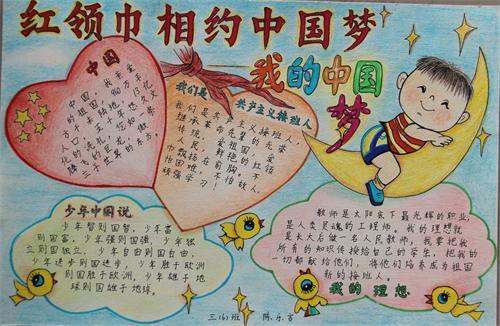 红领巾相约中国梦
我的中国
梦
中国
中国，我亲爱
的祖国。960万平
方千米陆地，13亿
人口，五千年悠久文
化的洗礼，您如一条
腾飞的巨龙，傲
立于世界的东方。
我们是
共产主义接班人
我们是共产主义接班人，
继承革命先辈的光荣
传统，爱祖国，爱人
民，鲜艳的红领
巾飘扬在前胸。不
怕困难，不怕敌人，
顽强学习
少年中国说
少年智则国智，少年富
则国富，少年强则国强，少年独
立则国独立，少年自由则国自由，
少年进步则国进步，少年胜于欧洲
则国胜于欧洲，少年雄于地
球则国雄于地球。
教师是太阳底下最光辉的职业，
是人类灵魂的工程师。我的理想就
是长大后做一名人民教师，我要把我
所有的知识传授给自己的学生，把我的一
切都献给他们，将他们培养成为祖国
新的接班人。
我的理想
三(6)班 陈乐言